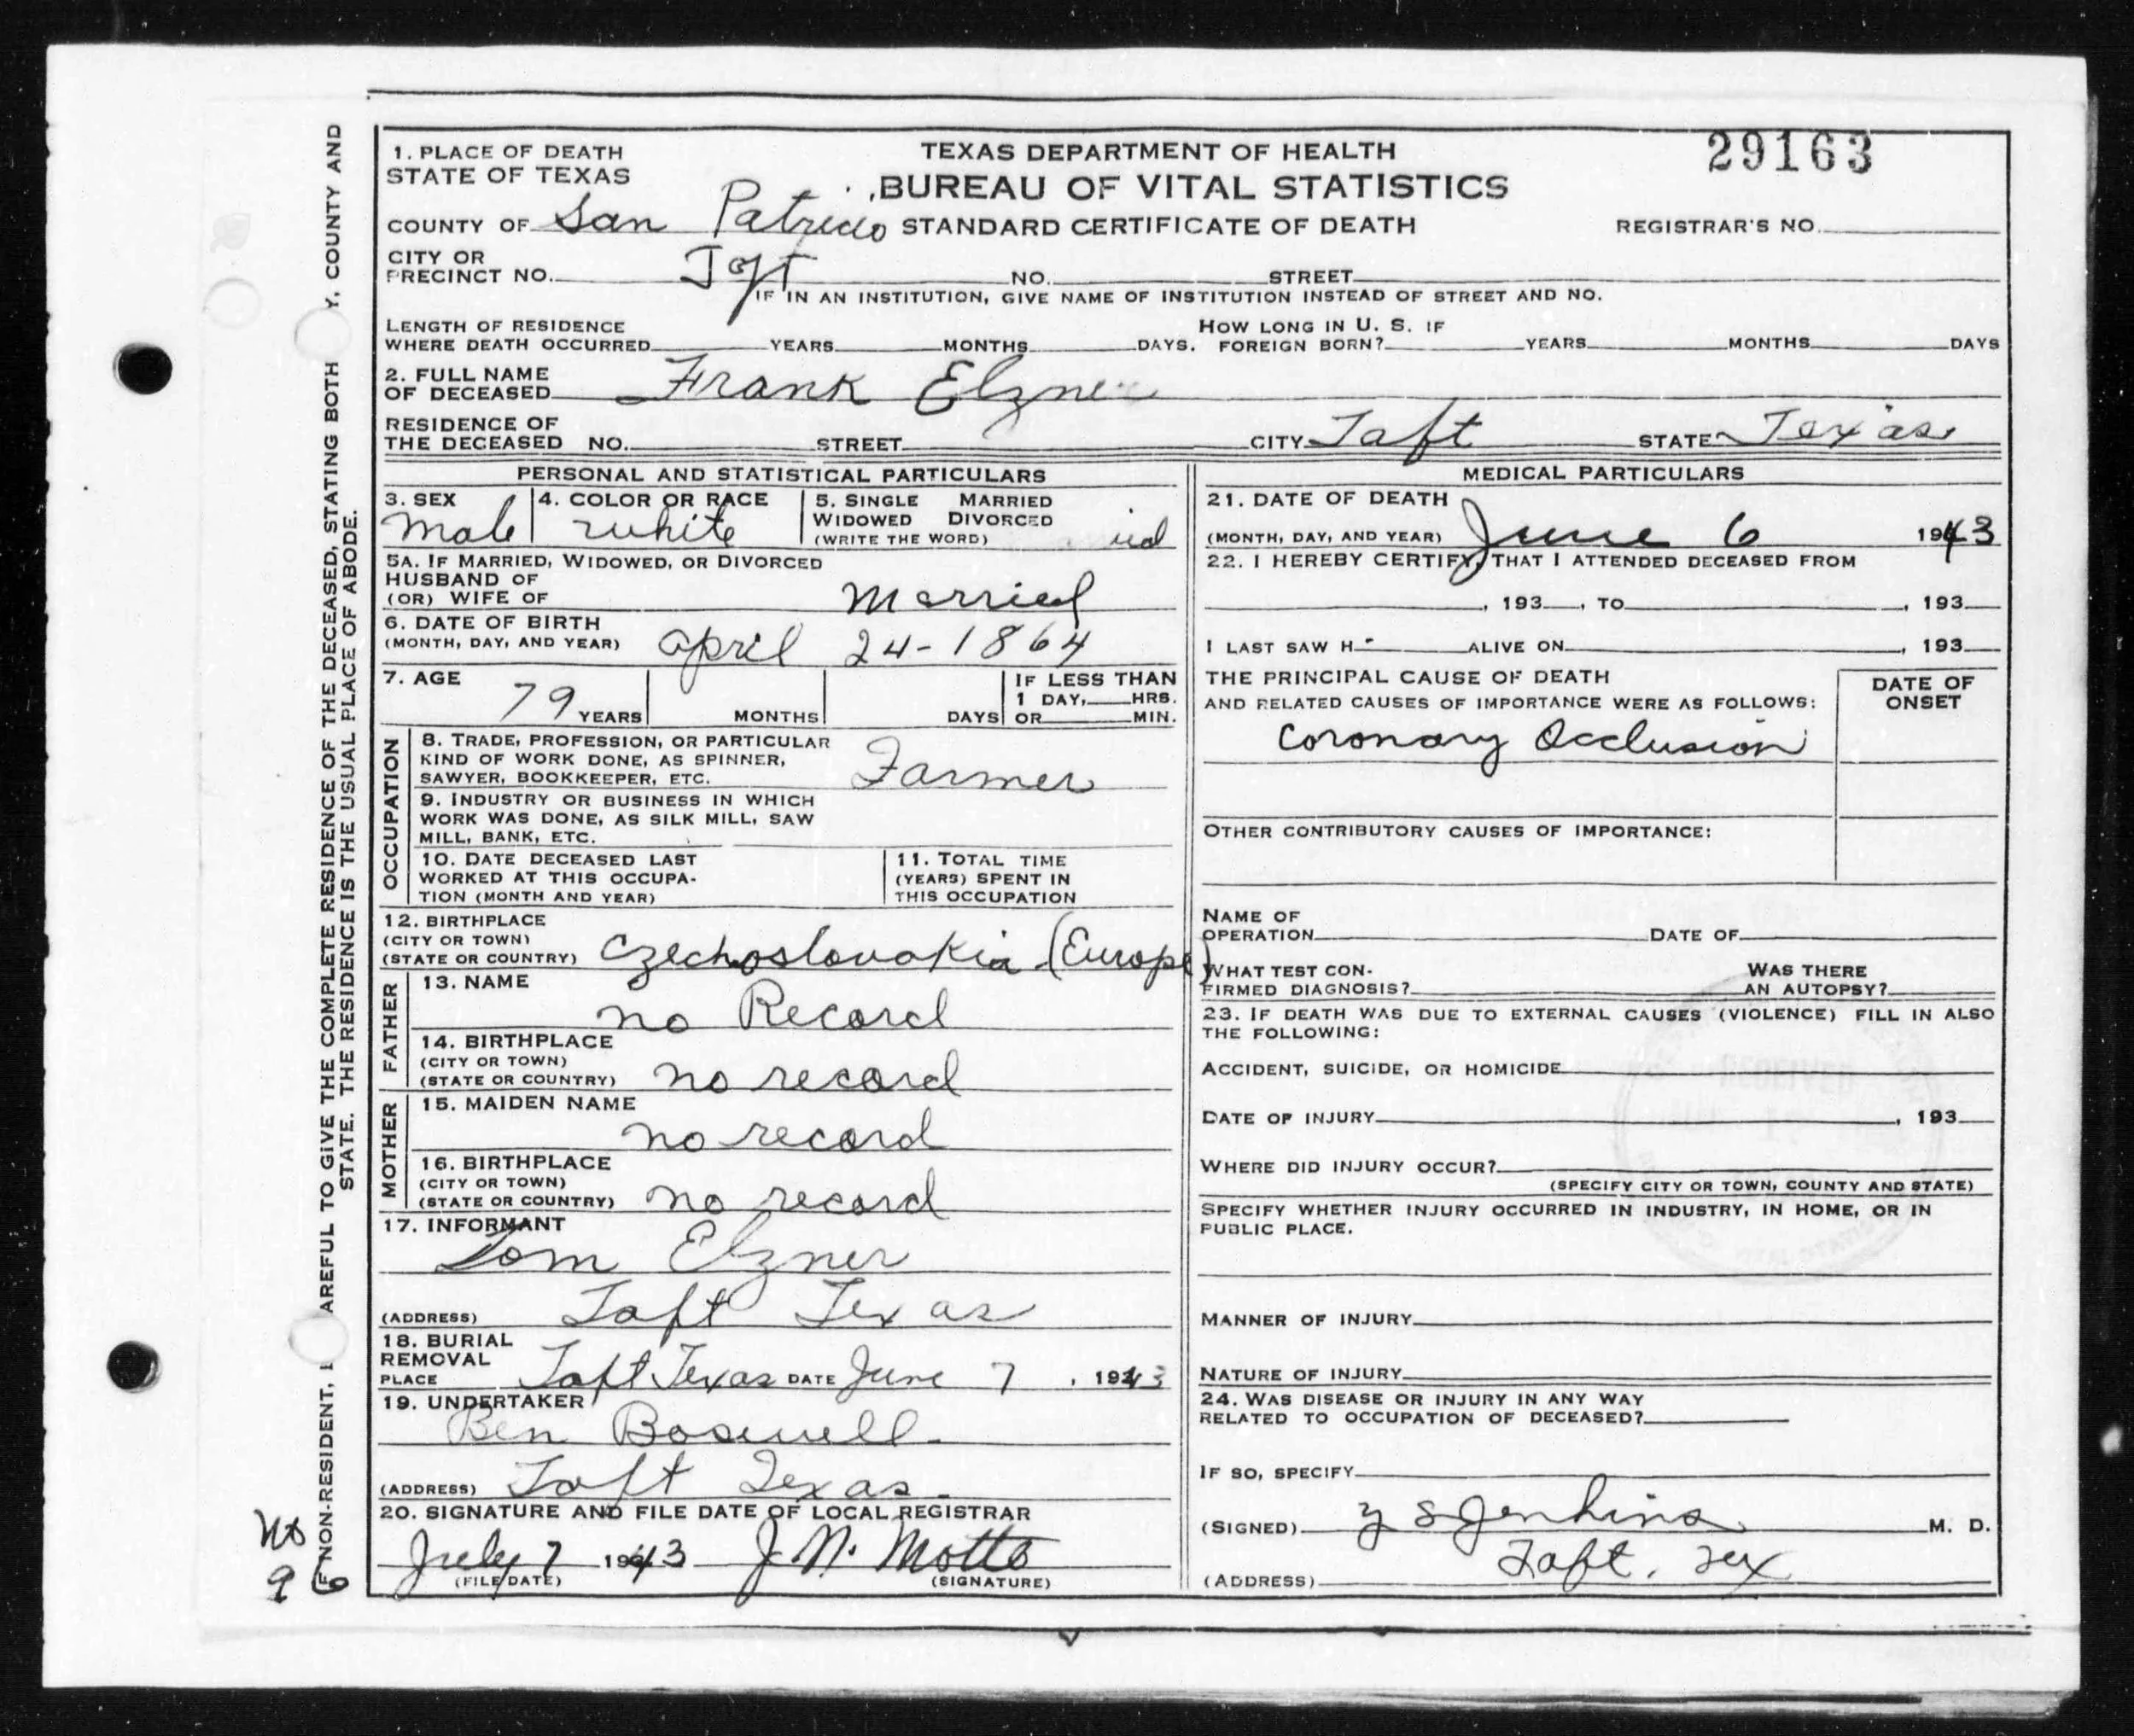 29163
1. PLACE OF DEATH
STATE OF TEXAS
TEXAS DEPARTMENT OF HEALTH
BUREAU OF VITAL STATISTICS
COUNTY OF San Patricio STANDARD CERTIFICATE OF DEATH REGISTRAR'S NO.
CITY OR
PRECINCT NO. Taft NO. STREET
IF IN AN INSTITUTION, GIVE NAME OF INSTITUTION INSTEAD OF STREET AND NO.
LENGTH OF RESIDENCE
WHERE DEATH OCCURRED YEARS MONTHS DAYS. HOW LONG IN U. S. IF
FOREIGN BORN? YEARS MONTHS DAYS
2. FULL NAME
OF DECEASED Frank Elzner
RESIDENCE OF
THE DECEASED NO. STREET CITY Taft STATE Texas
PERSONAL AND STATISTICAL PARTICULARS
3. SEX
Male
4. COLOR OR RACE
white
5. SINGLE MARRIED
WIDOWED DIVORCED
(WRITE THE WORD)
5A. IF MARRIED, WIDOWED, OR DIVORCED
HUSBAND OF
(OR) WIFE OF Married
6. DATE OF BIRTH
(MONTH, DAY, AND YEAR) april 24-1864
7. AGE
79 YEARS MONTHS DAYS
IF LESS THAN
1 DAY, HRS.
OR MIN.
OCCUPATION
8. TRADE, PROFESSION, OR PARTICULAR
KIND OF WORK DONE, AS SPINNER,
SAWYER, BOOKKEEPER, ETC. Farmer
9. INDUSTRY OR BUSINESS IN WHICH
WORK WAS DONE, AS SILK MILL, SAW
MILL, BANK, ETC.
10. DATE DECEASED LAST
WORKED AT THIS OCCUPA-
TION (MONTH AND YEAR)
11. TOTAL TIME
(YEARS) SPENT IN
THIS OCCUPATION
12. BIRTHPLACE
(CITY OR TOWN)
(STATE OR COUNTRY) Czechoslovakia (Europe)
FATHER
13. NAME
no Record
14. BIRTHPLACE
(CITY OR TOWN)
(STATE OR COUNTRY) no record
MOTHER
15. MAIDEN NAME
no record
16. BIRTHPLACE
(CITY OR TOWN)
(STATE OR COUNTRY) no record
17. INFORMANT
Tom Elzner
(ADDRESS) Taft Texas
18. BURIAL
REMOVAL
PLACE Taft Texas DATE June 7, 1943
19. UNDERTAKER
Ben Boswell
(ADDRESS) Taft Texas
20. SIGNATURE AND FILE DATE OF LOCAL REGISTRAR
July 7 1943 J. N. Motts
(FILE DATE) (SIGNATURE)
MEDICAL PARTICULARS
21. DATE OF DEATH
(MONTH, DAY, AND YEAR) June 6 1943
22. I HEREBY CERTIFY, THAT I ATTENDED DECEASED FROM
, 193 , TO , 193
I LAST SAW H ALIVE ON , 193
THE PRINCIPAL CAUSE OF DEATH
AND RELATED CAUSES OF IMPORTANCE WERE AS FOLLOWS:
DATE OF
ONSET
Coronary Occlusion
OTHER CONTRIBUTORY CAUSES OF IMPORTANCE:
NAME OF
OPERATION DATE OF
WHAT TEST CON-
FIRMED DIAGNOSIS? WAS THERE
AN AUTOPSY?
23. IF DEATH WAS DUE TO EXTERNAL CAUSES (VIOLENCE) FILL IN ALSO
THE FOLLOWING:
ACCIDENT, SUICIDE, OR HOMICIDE
DATE OF INJURY , 193
WHERE DID INJURY OCCUR?
(SPECIFY CITY OR TOWN, COUNTY AND STATE)
SPECIFY WHETHER INJURY OCCURRED IN INDUSTRY, IN HOME, OR IN
PUBLIC PLACE.
MANNER OF INJURY
NATURE OF INJURY
24. WAS DISEASE OR INJURY IN ANY WAY
RELATED TO OCCUPATION OF DECEASED?
IF SO, SPECIFY
(SIGNED) Y S Jenkins M. D.
(ADDRESS) Taft, Tex
NON-RESIDENT, AREFUL TO GIVE THE COMPLETE RESIDENCE OF THE DECEASED, STATING BOTH Y, COUNTY AND
STATE. THE RESIDENCE IS THE USUAL PLACE OF ABODE.
No
96